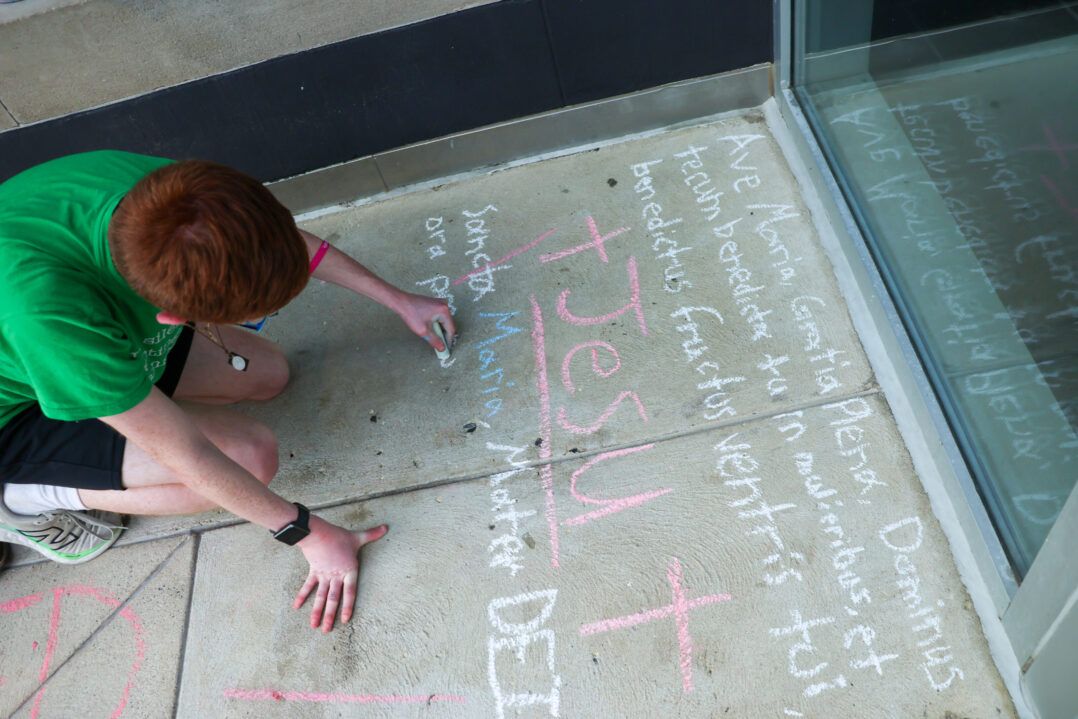 Ave Maria, Gratia plena, Dominus
tecum benedicta tu in mulieribus, et
benedictus fructus ventris tui,
+ Jesu +
Sancta Maria, Mater DEI
ora